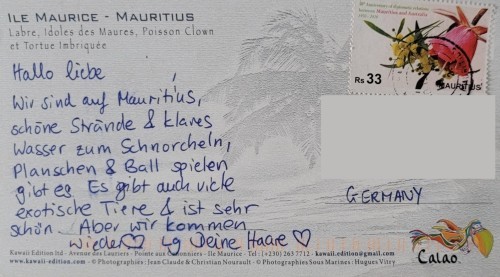 ILE MAURICE - MAURITIUS
Labre, Idoles des Maures, Poisson Clown
et Tortue Imbriquée
Hallo liebe !
Wir sind auf Mauritius,
schöne Strände & klares
Wasser zum Schnorcheln,
Planschen & Ball spielen
gibt es. Es gibt auch viele
exotische Tiere & ist sehr
schön. Aber wir kommen
wieder♡ Lg Deine Haare ♡
Kawaii Edition ltd - Avenue des Lauriers - Pointe aux Canonniers - Ile Maurice - Tel : (+230) 263 7712 - kawaii-edition@gmail.com
kawaii-edition.com - © Photographies : Jean Claude & Christian Nourault - © Photographies Sous Marines : Hugues Vitry
Mauritius and Australia
Rs 33
MAURITIUS
GERMANY
Calao